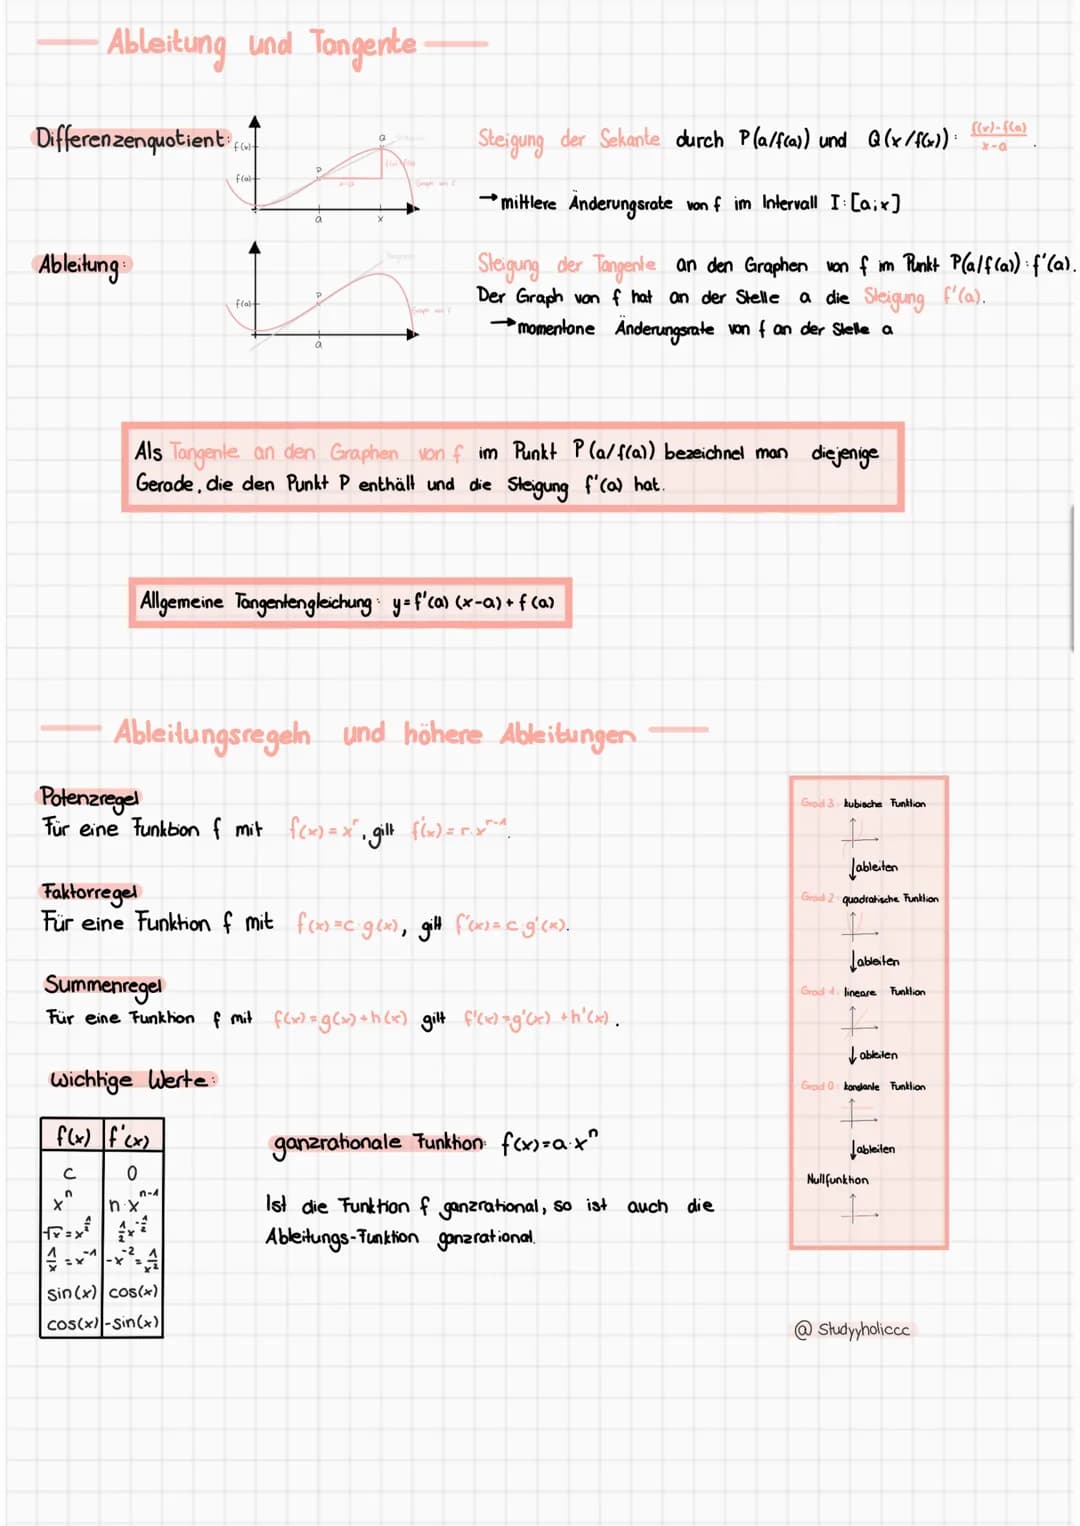 Ableitung und Tangente
Differenzenquotient:
f(x)
f(a)
P
Q
a
x
x-a
f(x)-f(a)
Graph von f
Steigung der Sekante durch P(a/f(a)) und Q(x/f(x)): f(x)-f(a) / x-a .
→ mittlere Änderungsrate von f im Intervall I:[a;x]
Ableitung:
f(a)
P
a
Tangente
Graph von f
Steigung der Tangente an den Graphen von f im Punkt P(a/f(a)): f'(a).
Der Graph von f hat an der Stelle a die Steigung f'(a).
→ momentane Änderungsrate von f an der Stelle a
Als Tangente an den Graphen von f im Punkt P(a/f(a)) bezeichnet man diejenige
Gerade, die den Punkt P enthält und die Steigung f'(a) hat.
Allgemeine Tangentengleichung: y=f'(a) (x-a) + f(a)
Ableitungsregeln und höhere Ableitungen
Potenzregel
Für eine Funktion f mit f(x) = x^r, gilt f'(x) = r·x^r-1.
Faktorregel
Für eine Funktion f mit f(x) = c·g(x), gilt f'(x) = c·g'(x).
Summenregel
Für eine Funktion f mit f(x) = g(x) + h(x) gilt f'(x) = g'(x) + h'(x).
Wichtige Werte:
f(x) f'(x)
c 0
x^n n·x^n-1
√x = x^1/2 1/2 x^-1/2
1/x = x^-1 -x^-2 = 1/x^2
sin(x) cos(x)
cos(x) -sin(x)
ganzrationale Funktion: f(x)=a·x^n
Ist die Funktion f ganzrational, so ist auch die
Ableitungs-Funktion ganzrational.
Grad 3: kubische Funktion
↓ableiten
Grad 2: quadratische Funktion
↓ableiten
Grad 1: lineare Funktion
↓ableiten
Grad 0: konstante Funktion
↓ableiten
Nullfunktion
@ Studyyholiccc